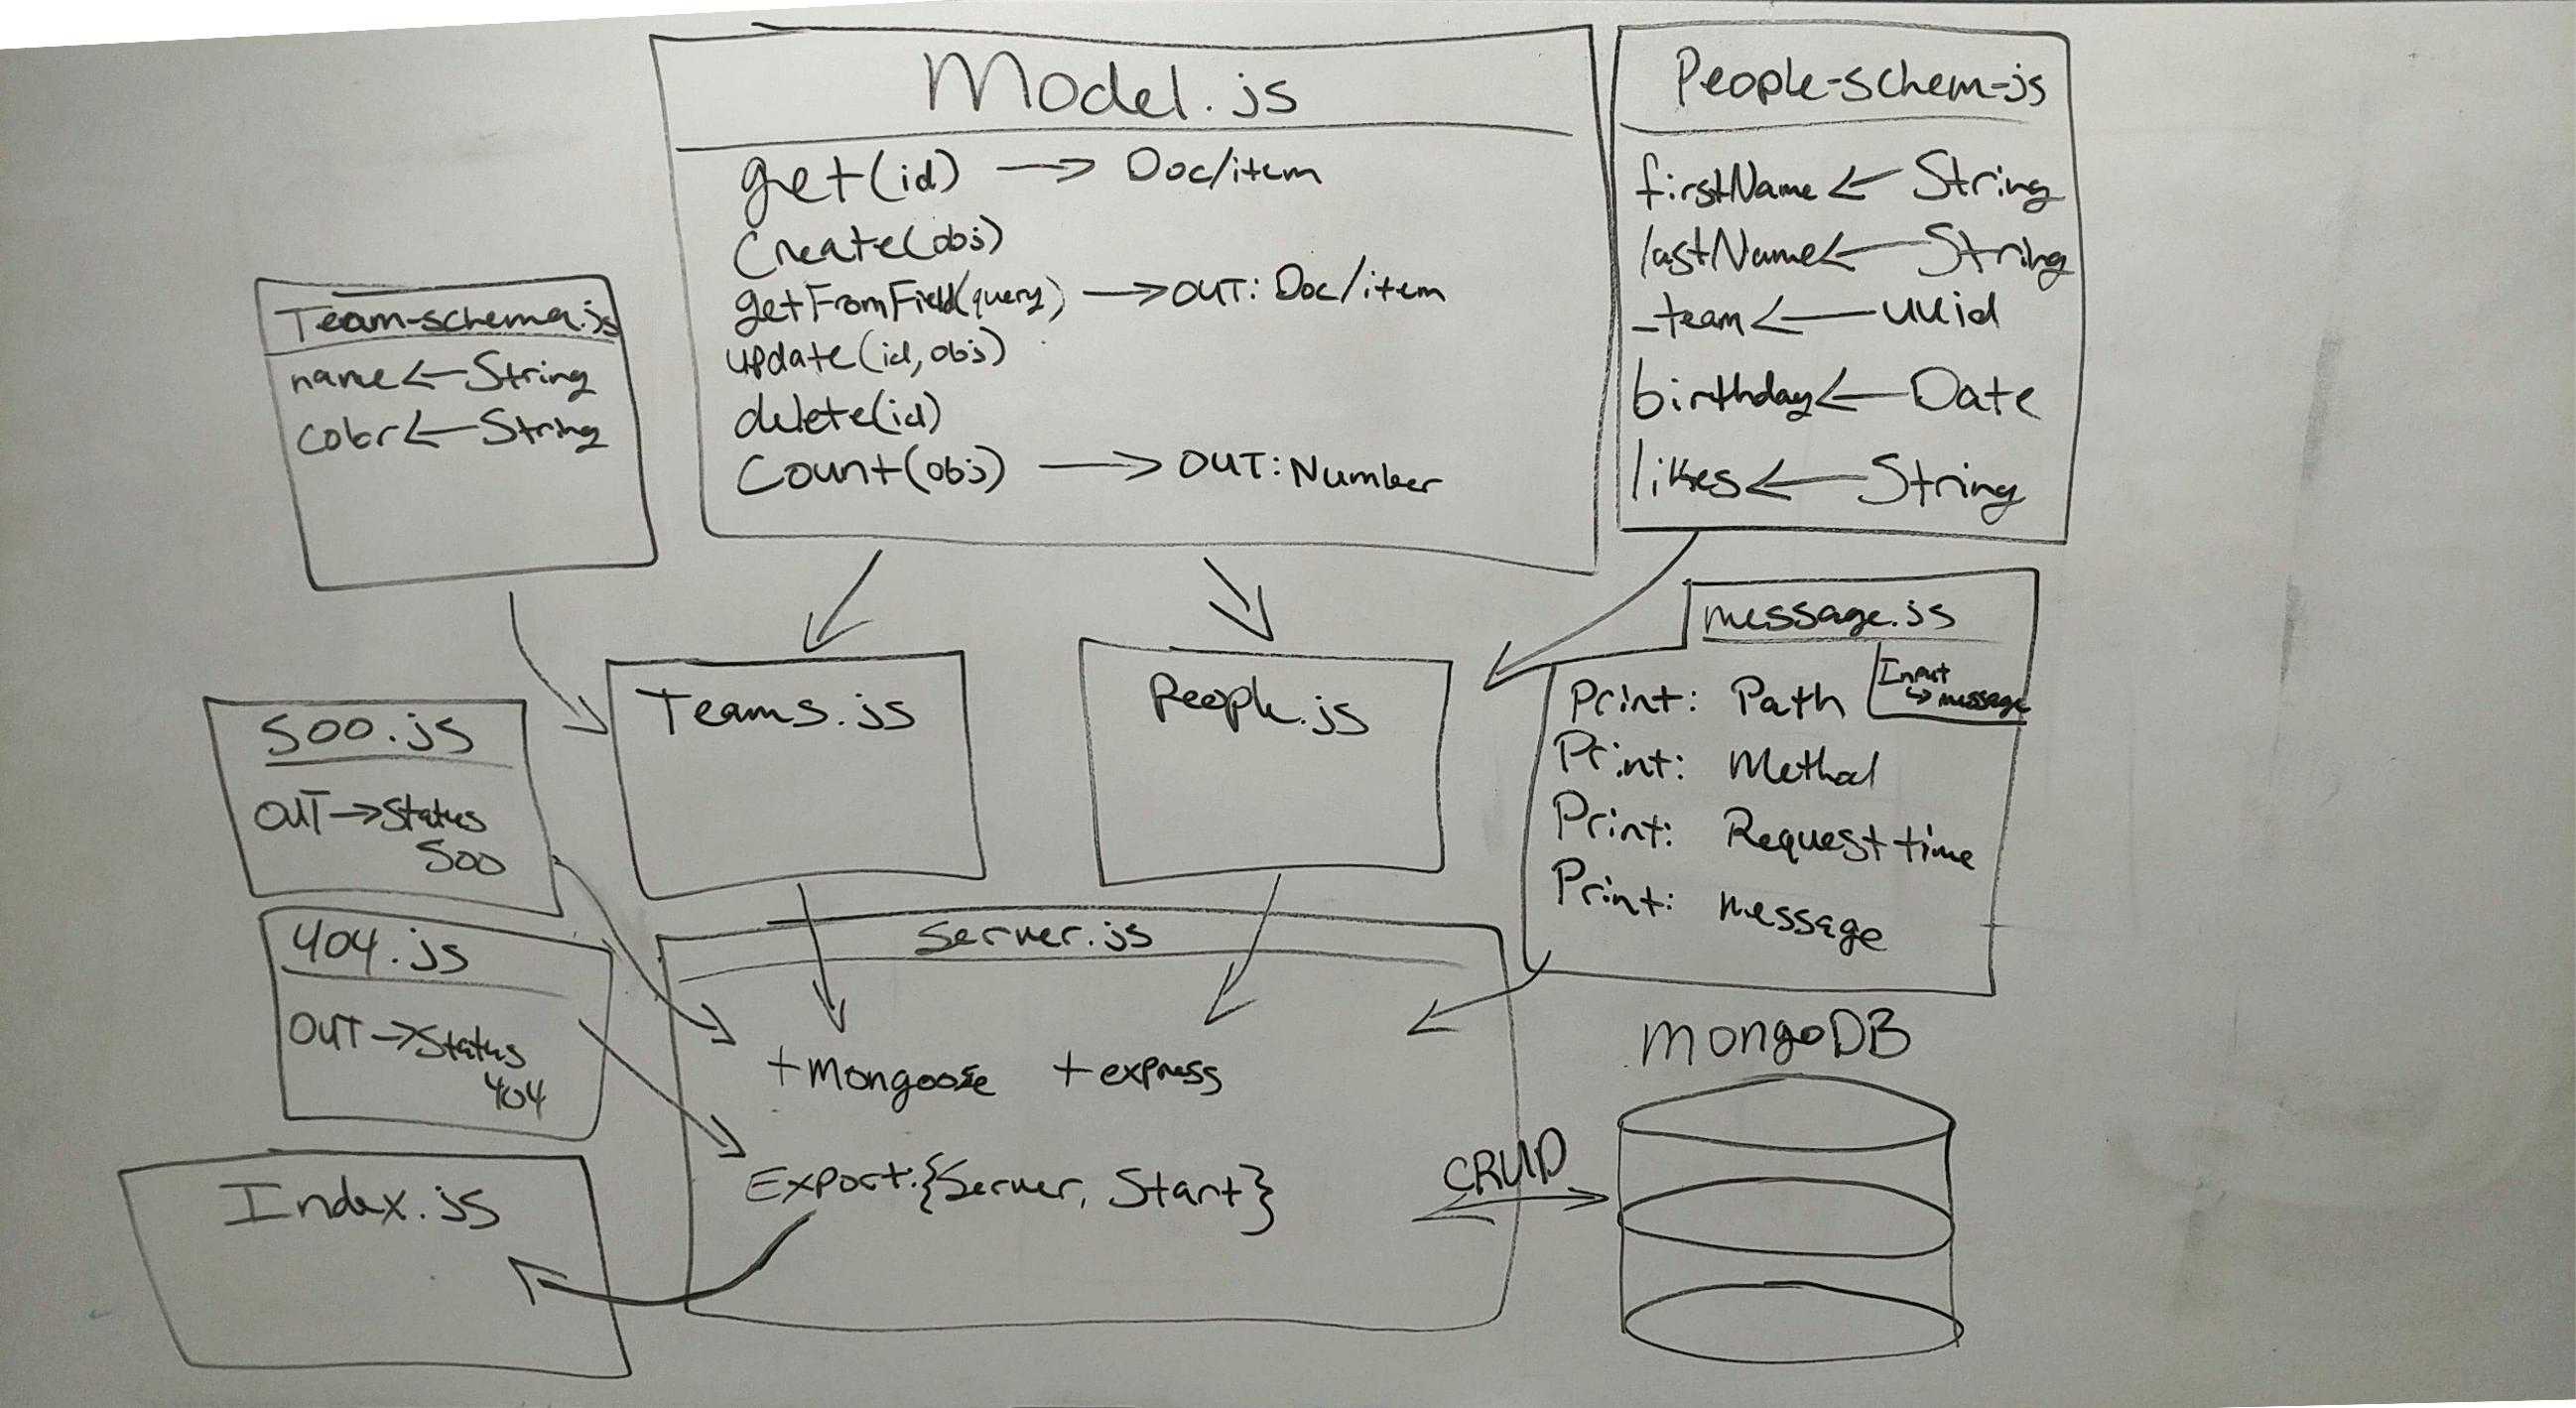 Model.js
get(id) → Doc/item
Create(obj)
getFromField(query) → OUT: Doc/item
update(id, obj)
delete(id)
Count(obj) → OUT: Number
People-schem-js
firstName ← String
lastName ← String
_team ← uuid
birthday ← Date
likes ← String
Team-schema.js
name ← String
color ← String
Teams.js
People.js
message.js
Input
↪ message
Print: Path
Print: Method
Print: Request time
Print: message
500.js
OUT → Status
500
404.js
OUT → Status
404
Server.js
+mongoose +express
Export:{Server, Start}
Index.js
CRUD
mongoDB